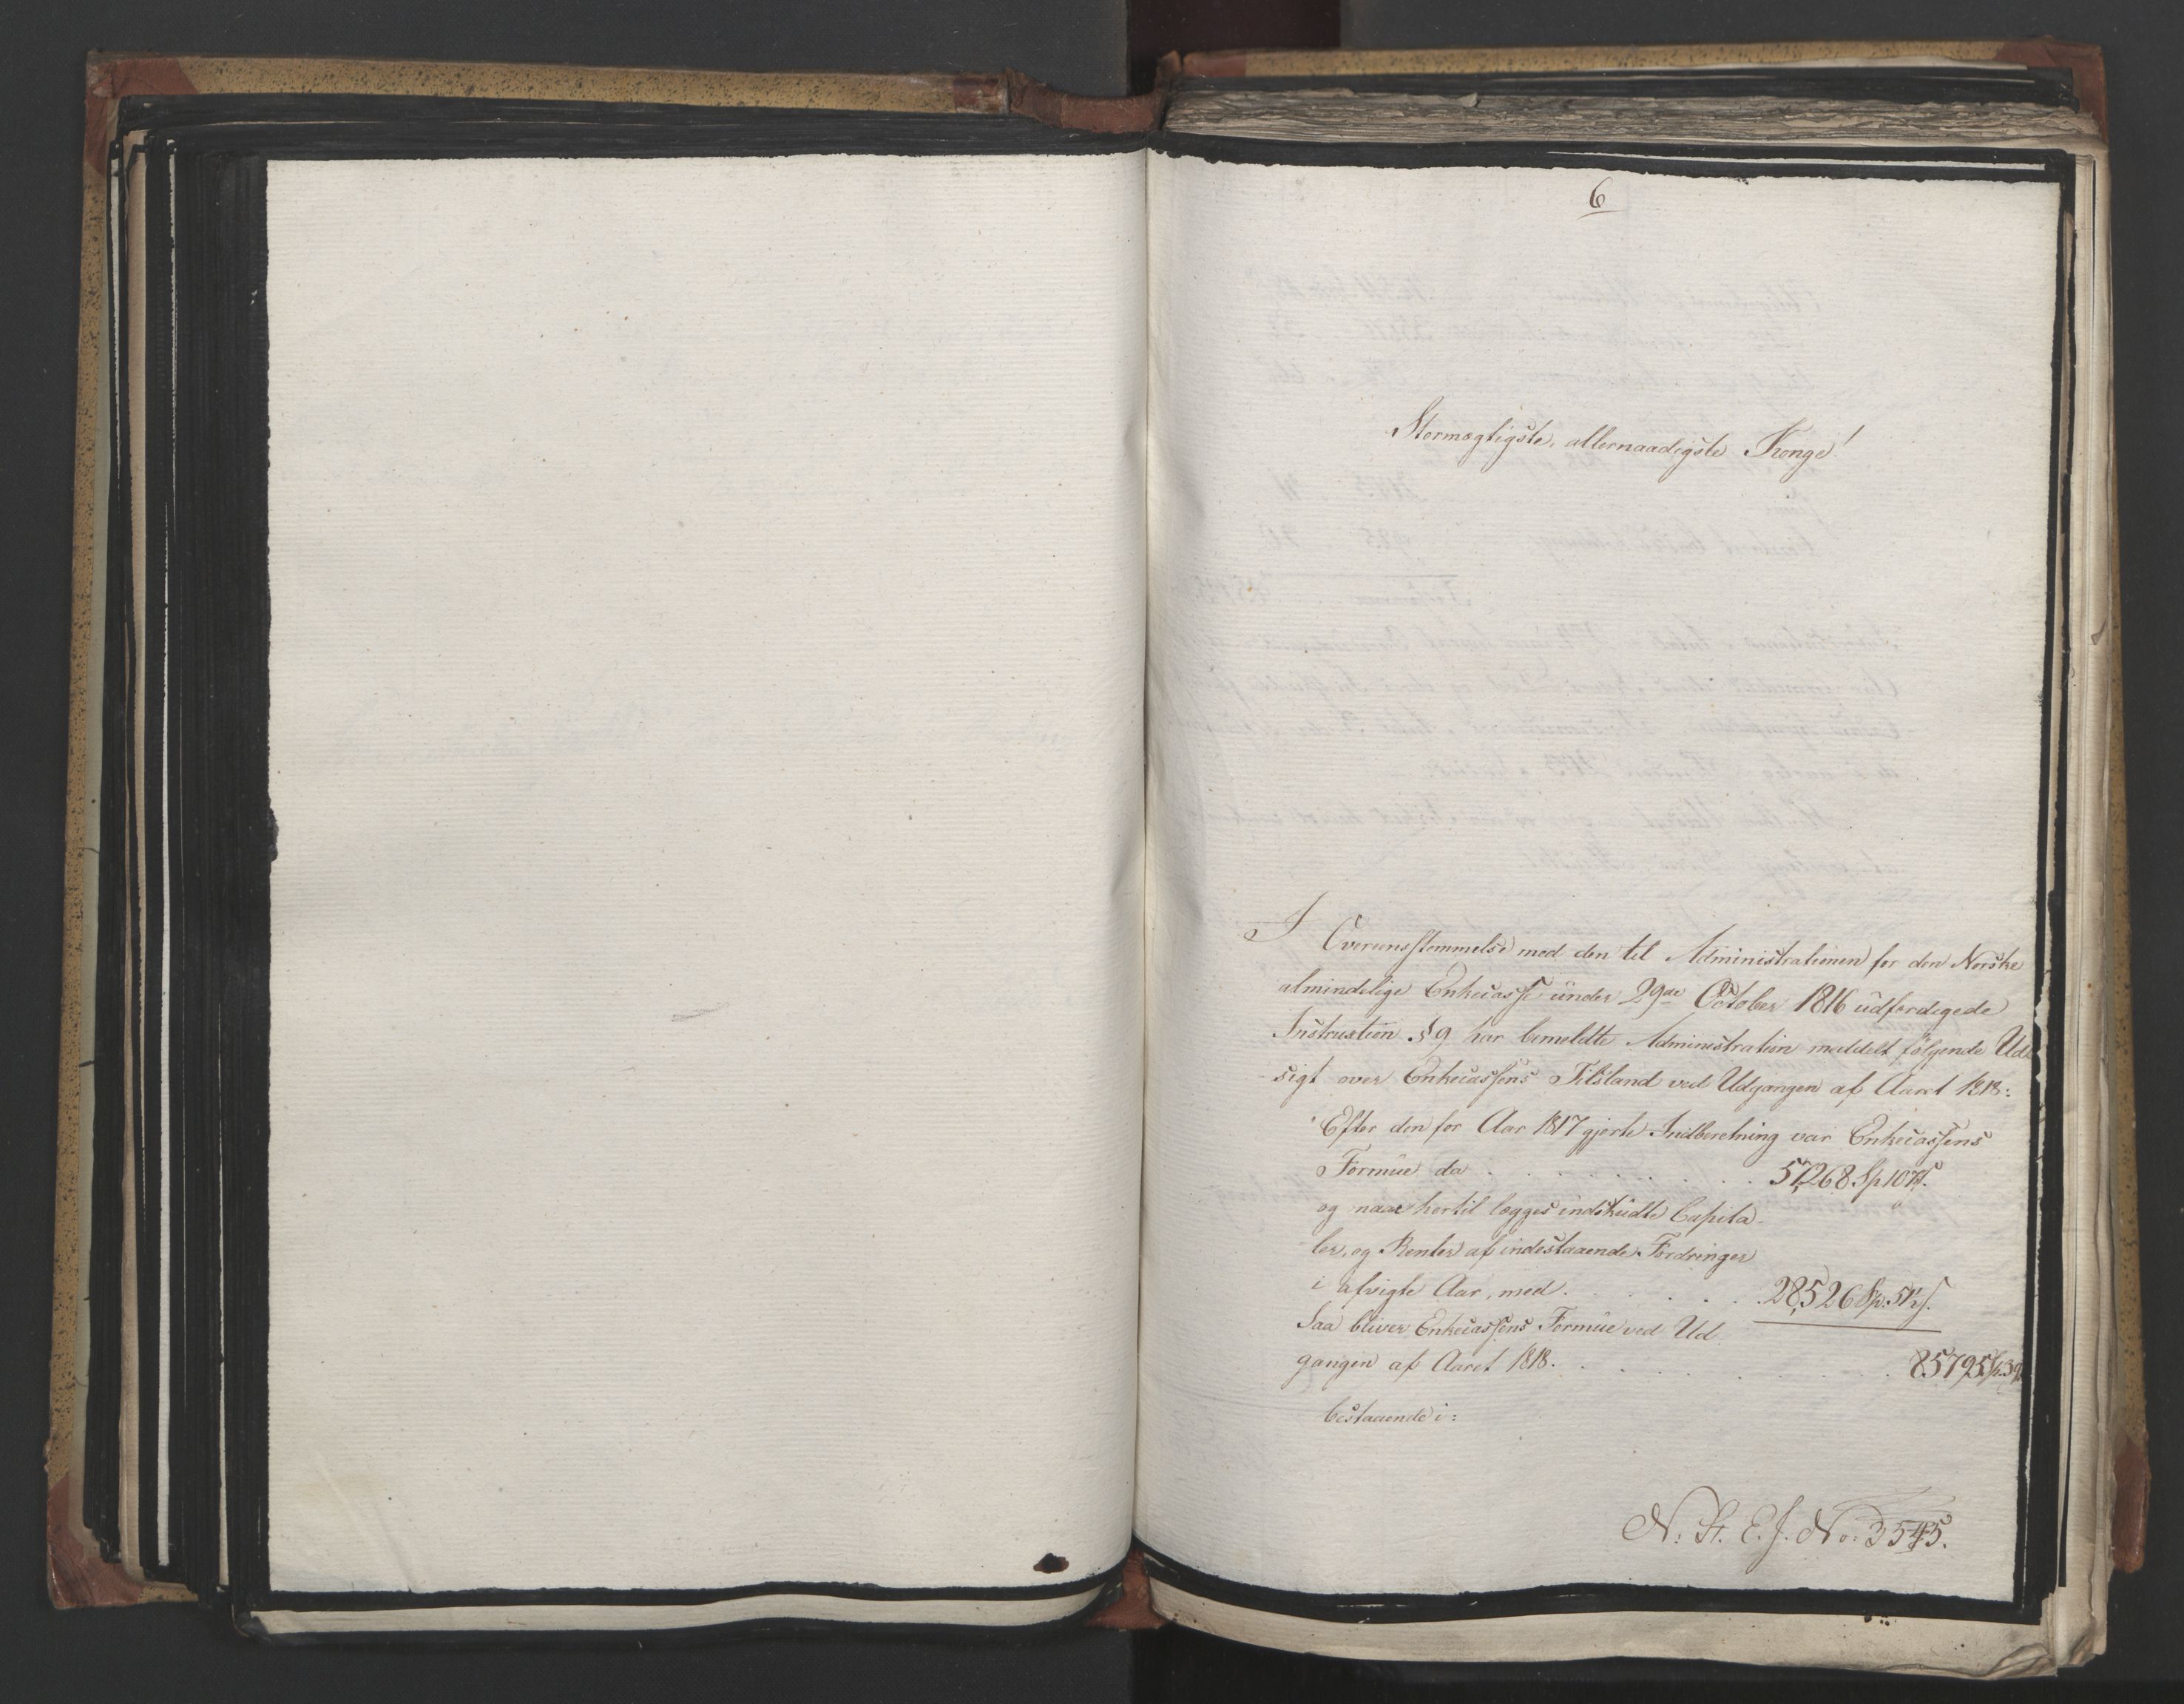 6
Stormægtigste, allernaadigste Konge!
I Overeensstemmelse med den til Administrationen for den Norske
almindelige Enkecasse ünder 29de October 1816 udfærdigede
Instruxtion § 9 har bemeldte Administration meddelt følgende Ud
sigt over Enkecassens Tilstand ved Udgangen af Aaret 1818:
Efter den for Aar 1817 gjorte Indberetning var Enkecassens
Formüe da . . . . . . 57,268 Sp 107 s.
og naar hertil lægges indskudte Capita-
ler, og Renter af indestaaende Fordringer
i afvigte Aar, med . . . . . 28,526 Sp. 51½ s.
Saa bliver Enkecassens Formüe ved Ud
gangen af Aaret 1818. . . . . . 85795 Sp. 39
bestaaende i:
N. St. E. J. No: 3545.